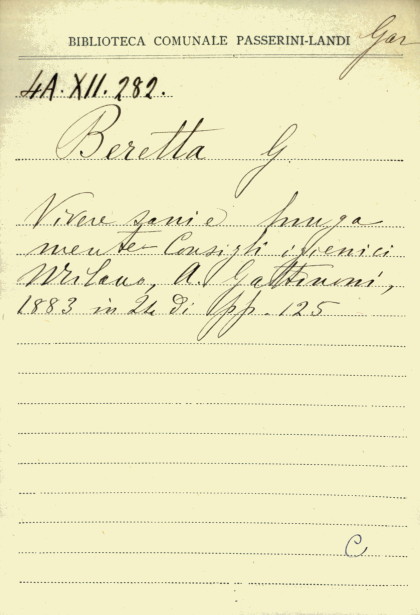 BIBLIOTECA COMUNALE PASSERINI-LANDI Gar
4A.XII.282.
Beretta G.
Vivere sani e lunga
mente Consigli igienici
Milano, A. Gattinoni,
1883 in 24 di pp. 125
C